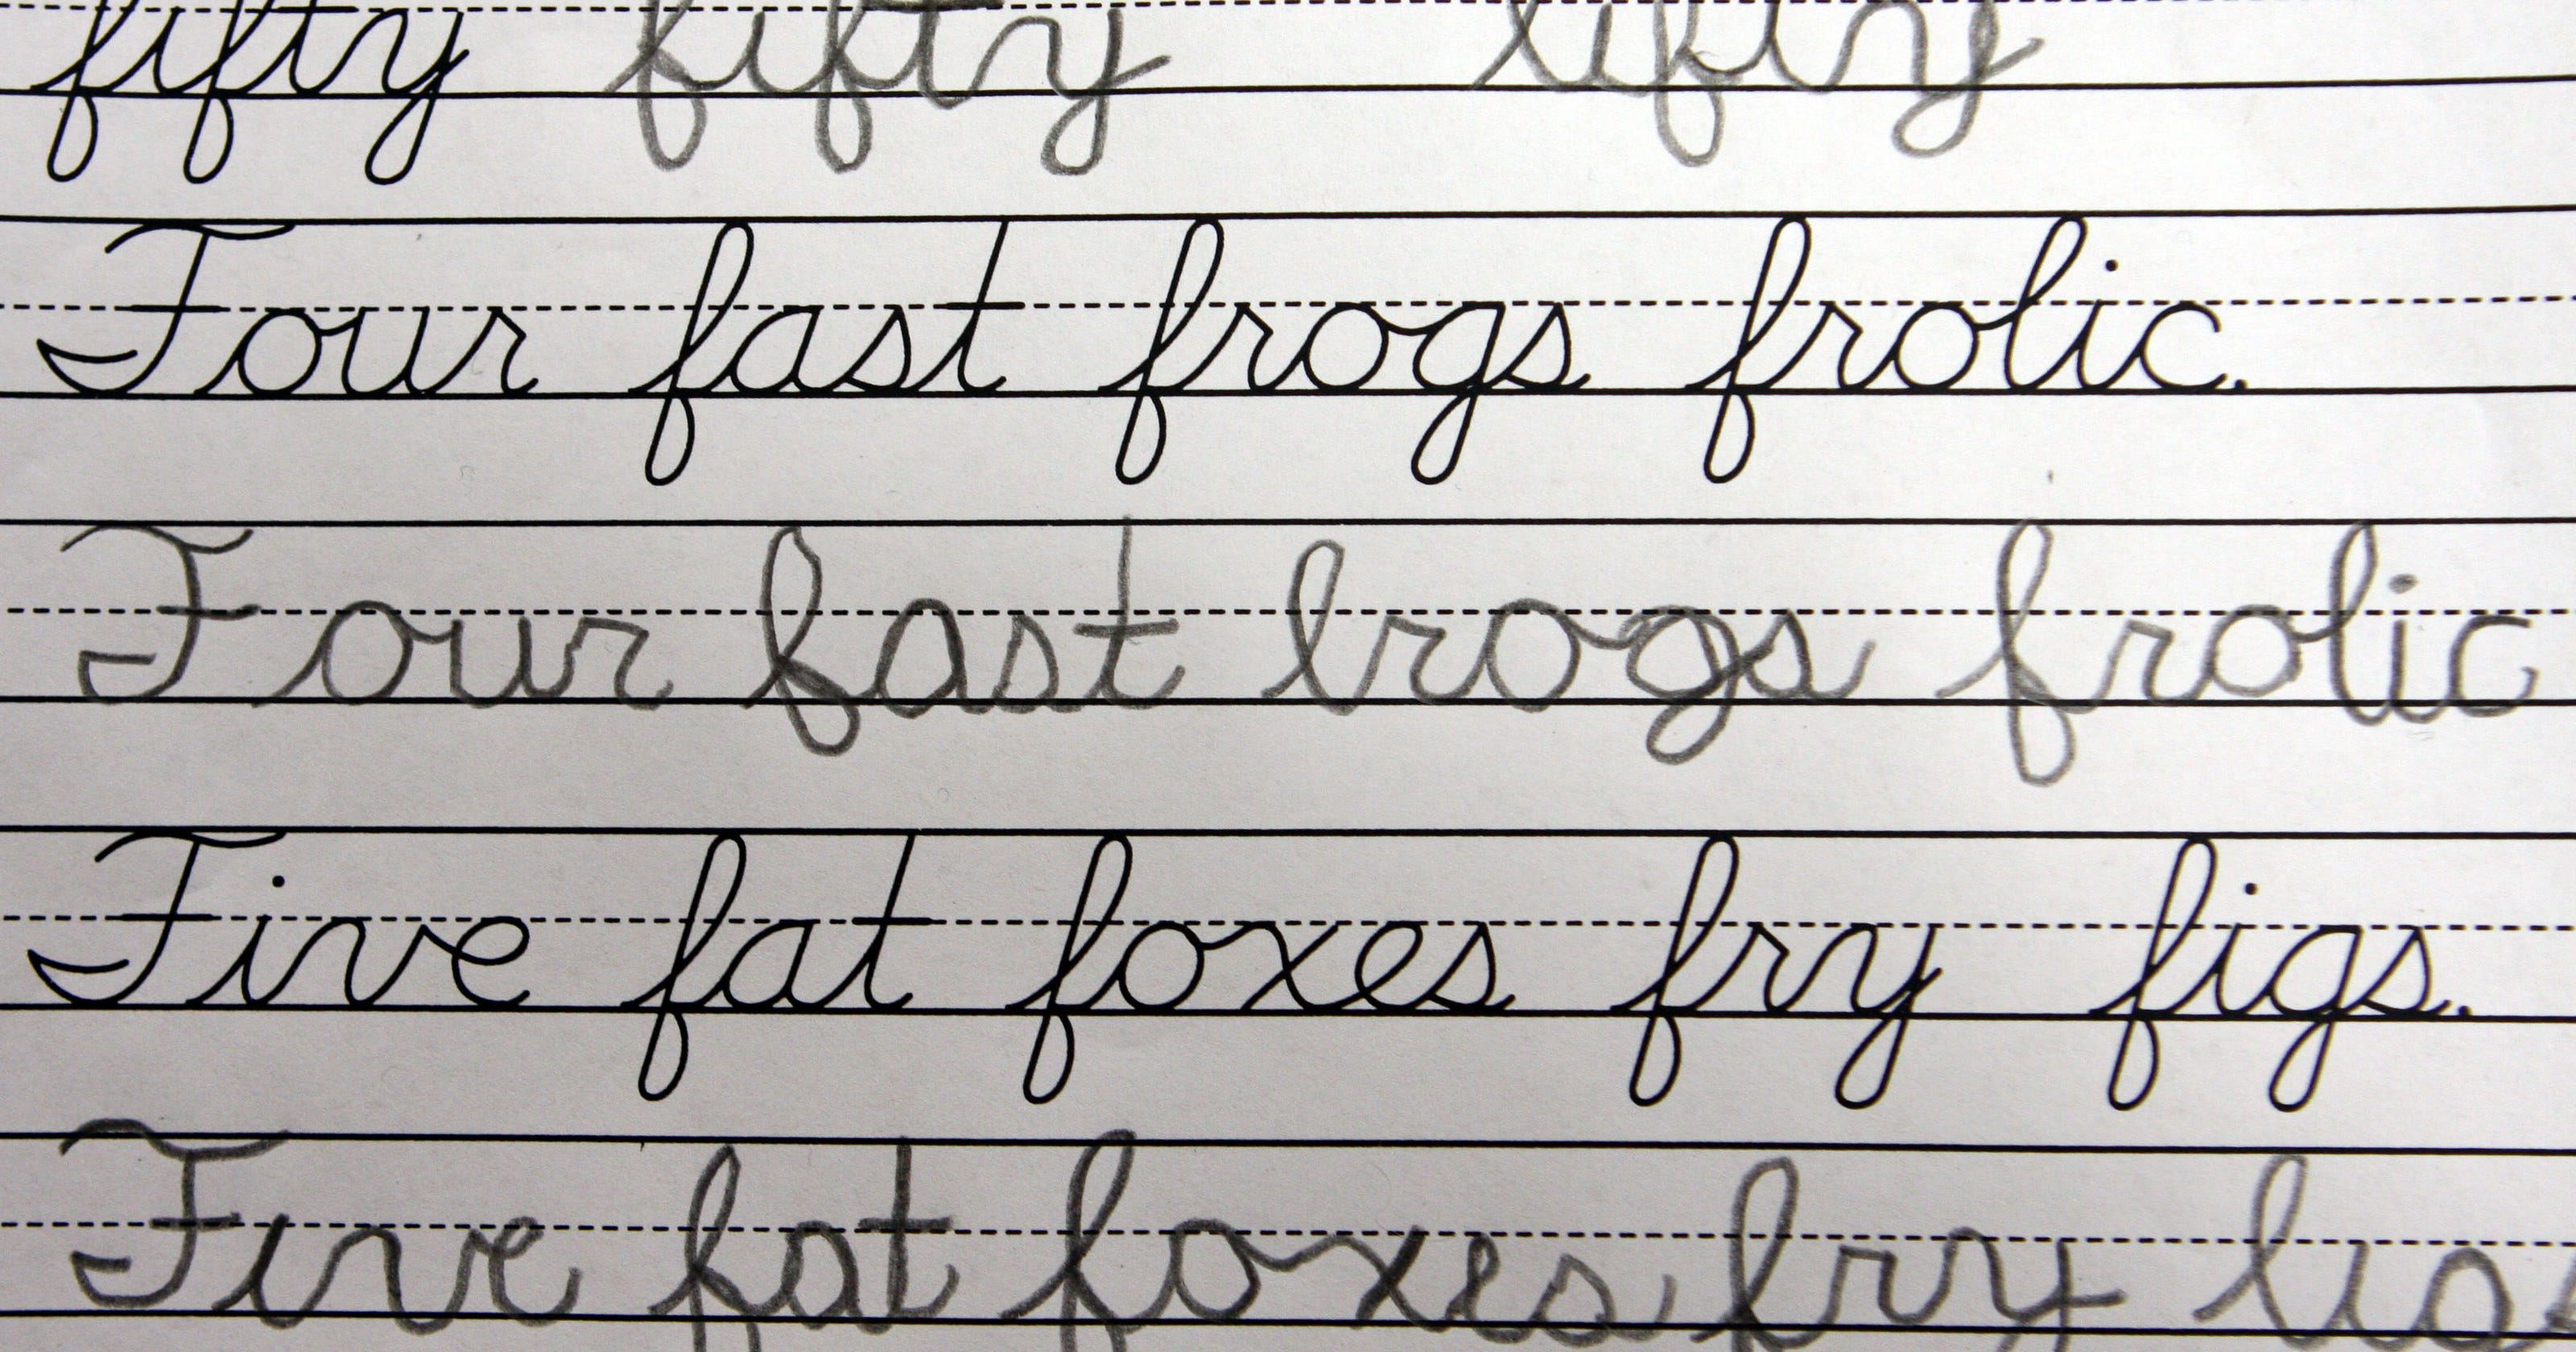 fifty fifty lifty
Four fast frogs frolic.
Four fast lrogs frolic
Five fat foxes fry figs.
Five fat foxes fry